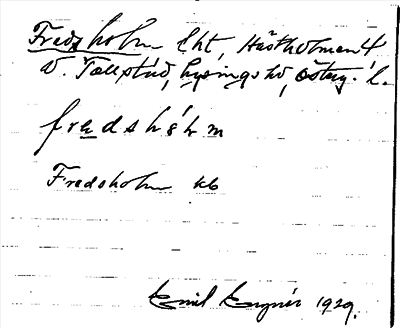 Fredsholm lht, Hästholmen 4
V. Tollstad, Lysings hd, Österg. l.
fredshåḷm
Fredsholm kb
Emil Engnér 1929.